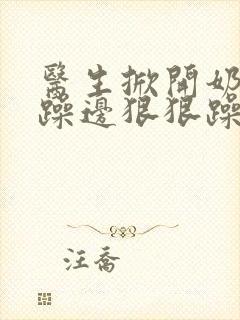 醫生掀開奶
躁邊狠狠躁
汪喬